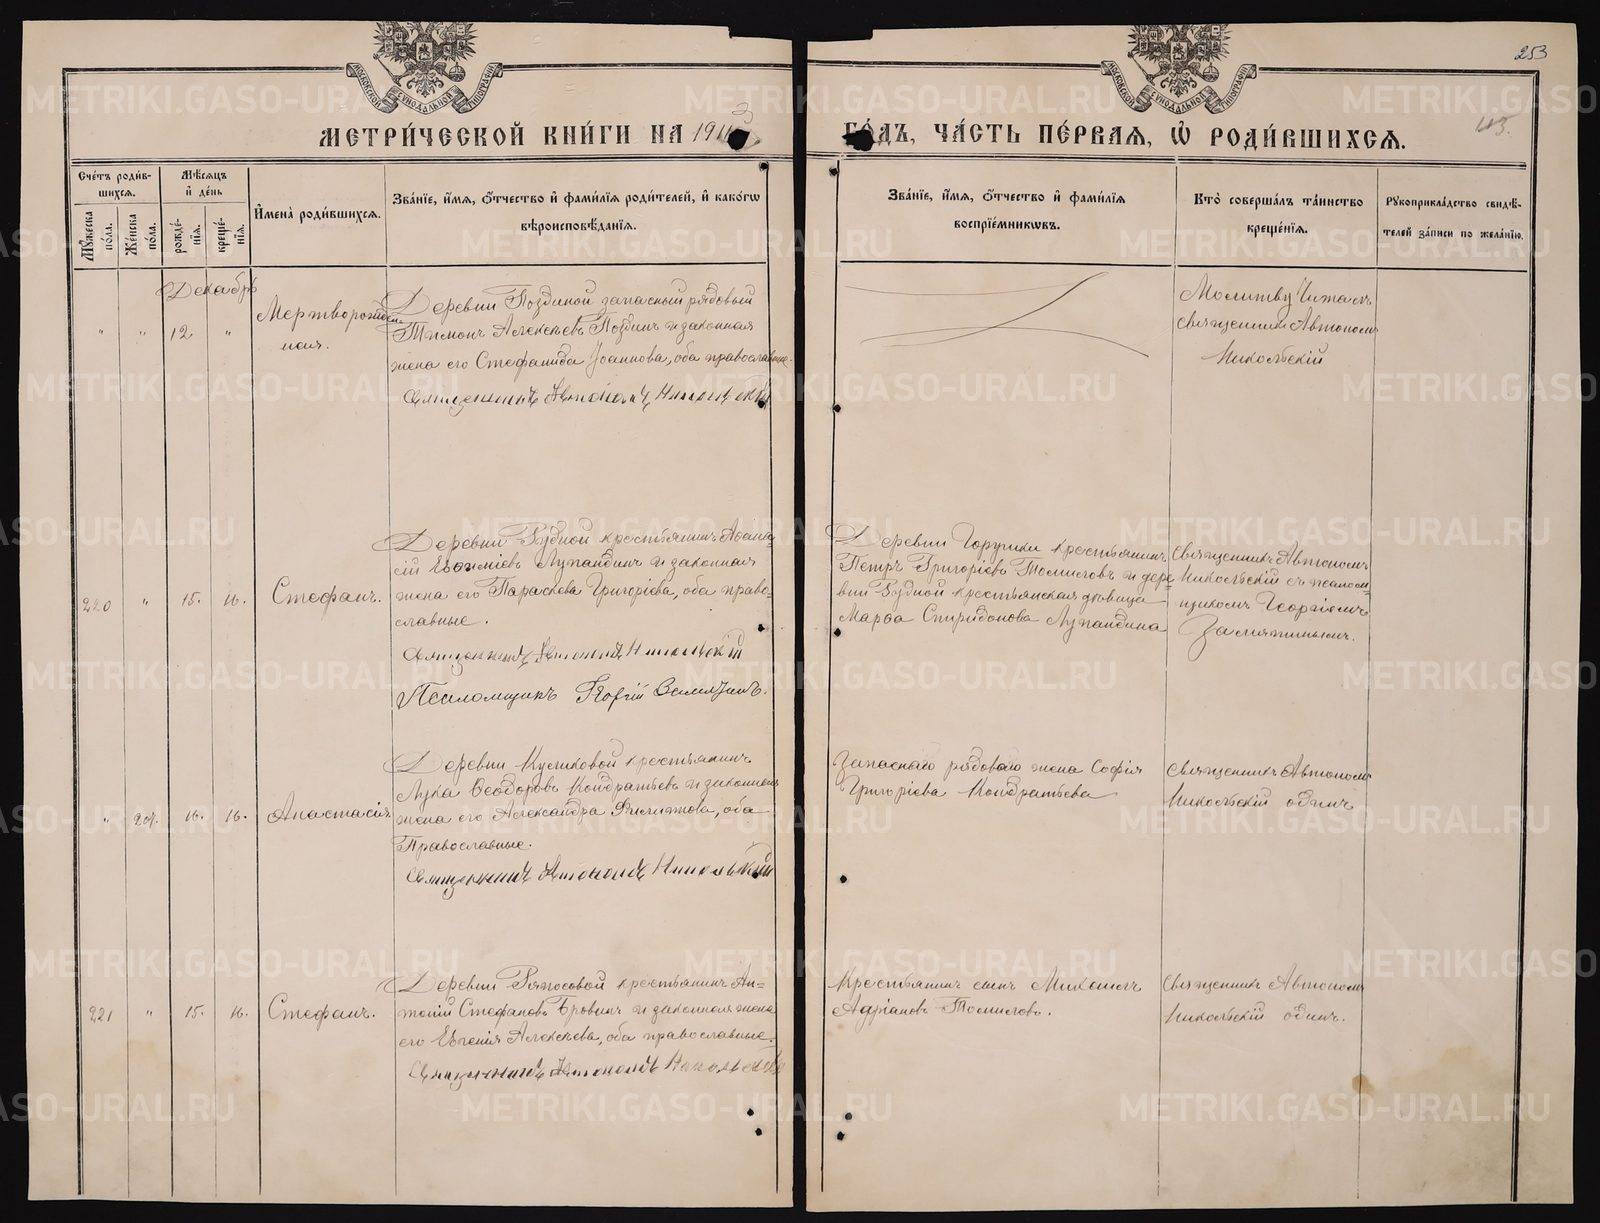 253
МЕТРИ́ЧЕСКОЙ КНИ́ГИ НА 191
ГО́ДЪ, ЧА́СТЬ ПЕ́РВАЯ, Ѡ҆ РОДИ́ВШИХСЯ.
МОСКОВСКОЙ СѴНОДАЛЬНОЙ ТИПОГРАФІИ
МОСКОВСКОЙ СѴНОДАЛЬНОЙ ТИПОГРАФІИ
Сче́тъ роди́в-
шихся.
Мꙋ́жеска
пола.
Же́нска
по́ла.
Мѣ́сяцъ
и҆ де́нь
рожде́-
нїя.
креще́-
нїя.
И҆мена̀ роди́вшихся.
Зва́нїе, и҆́мя, ѻ҆́тчество и҆ фами́лїя роди́телей, и҆ како́гѡ
вѣроисповѣ́данїя.
Зва́нїе, и҆́мя, ѻ҆́тчество и҆ фами́лїя
воспрїе́мникѡвъ.
Кто̀ соверша́лъ та́инство
креще́нїя.
Рꙋкоприкла́дство свидѣ́-
телей за́писи по жела́нїю.
Декабрь
" " 12. "
Мертворожден
ная.
Деревни Поздиной запасный рядовый
Тимонъ Алексѣевъ Поздинъ и законная
жена его Стефанида Іоаннова, оба православные.
Священникъ Автономъ Никольскій
Молитву читалъ
священникъ Автономъ
Никольскій
220 " 15. 16.
Стефанъ.
Деревни Рудной крестьянинъ Аѳана-
сій Евѳиміевъ Лупандинъ и законная
жена его Параскева Григоріева, оба право-
славные.
Священникъ Автономъ Никольскій
Псаломщикъ Георгій
Деревни крестьянинъ
Петръ Григоріевъ Томиловъ и дере-
вни Рудной крестьянская дѣвица
Марѳа Спиридонова Лупандина
Священникъ Автономъ
Никольскій съ псалом-
щикомъ Георгіемъ
" 207. 16. 16.
Анастасія
Деревни Куликовой крестьянинъ
Лука Ѳеодоровъ Кондратьевъ и законная
жена его Александра Филиппова, оба
Православные.
Священникъ Автономъ Никольскій
Запаснаго рядоваго жена Софія
Григоріева Кондратьева
Священникъ Автономъ
Никольскій одинъ
221 " 15. 16.
Стефанъ.
Деревни крестьянинъ Ан-
тоній Стефановъ Бровинъ и законная жена
его Евгенія Алексѣева, оба православные.
Священникъ Автономъ Никольскій
Крестьянинъ сынъ
Адріановъ Томиловъ.
Священникъ Автономъ
Никольскій одинъ.
METRIKI.GASO-URAL.RU